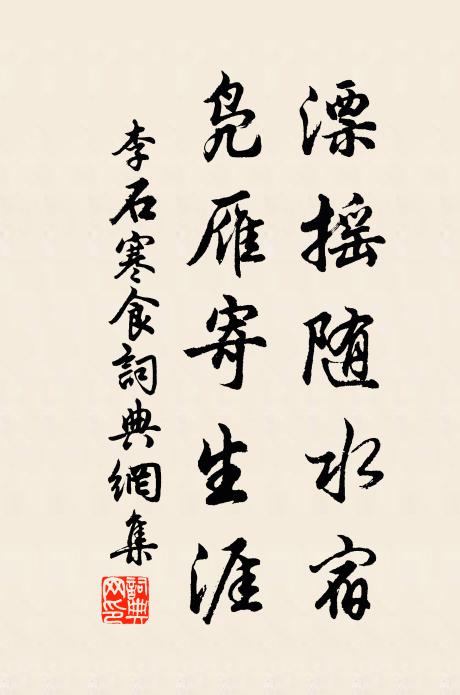 漂摇随水宿
凫雁寄生涯
李石寒食詞典網集
詞典网印